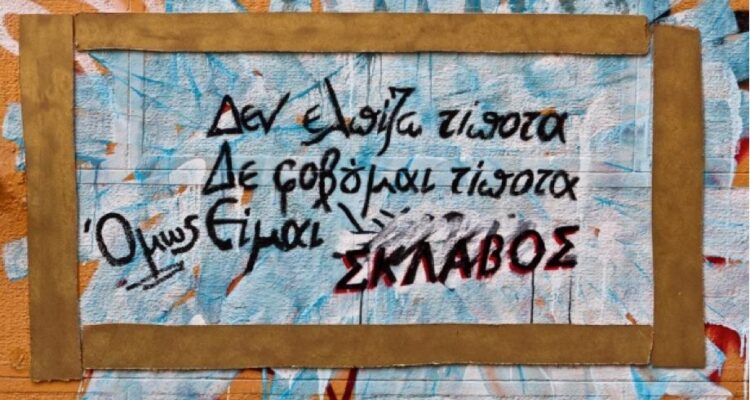 Δεν ελπίζω τίποτα
Δε φοβόμαι τίποτα
Όμως Είμαι
ΣΚΛΑΒΟΣ